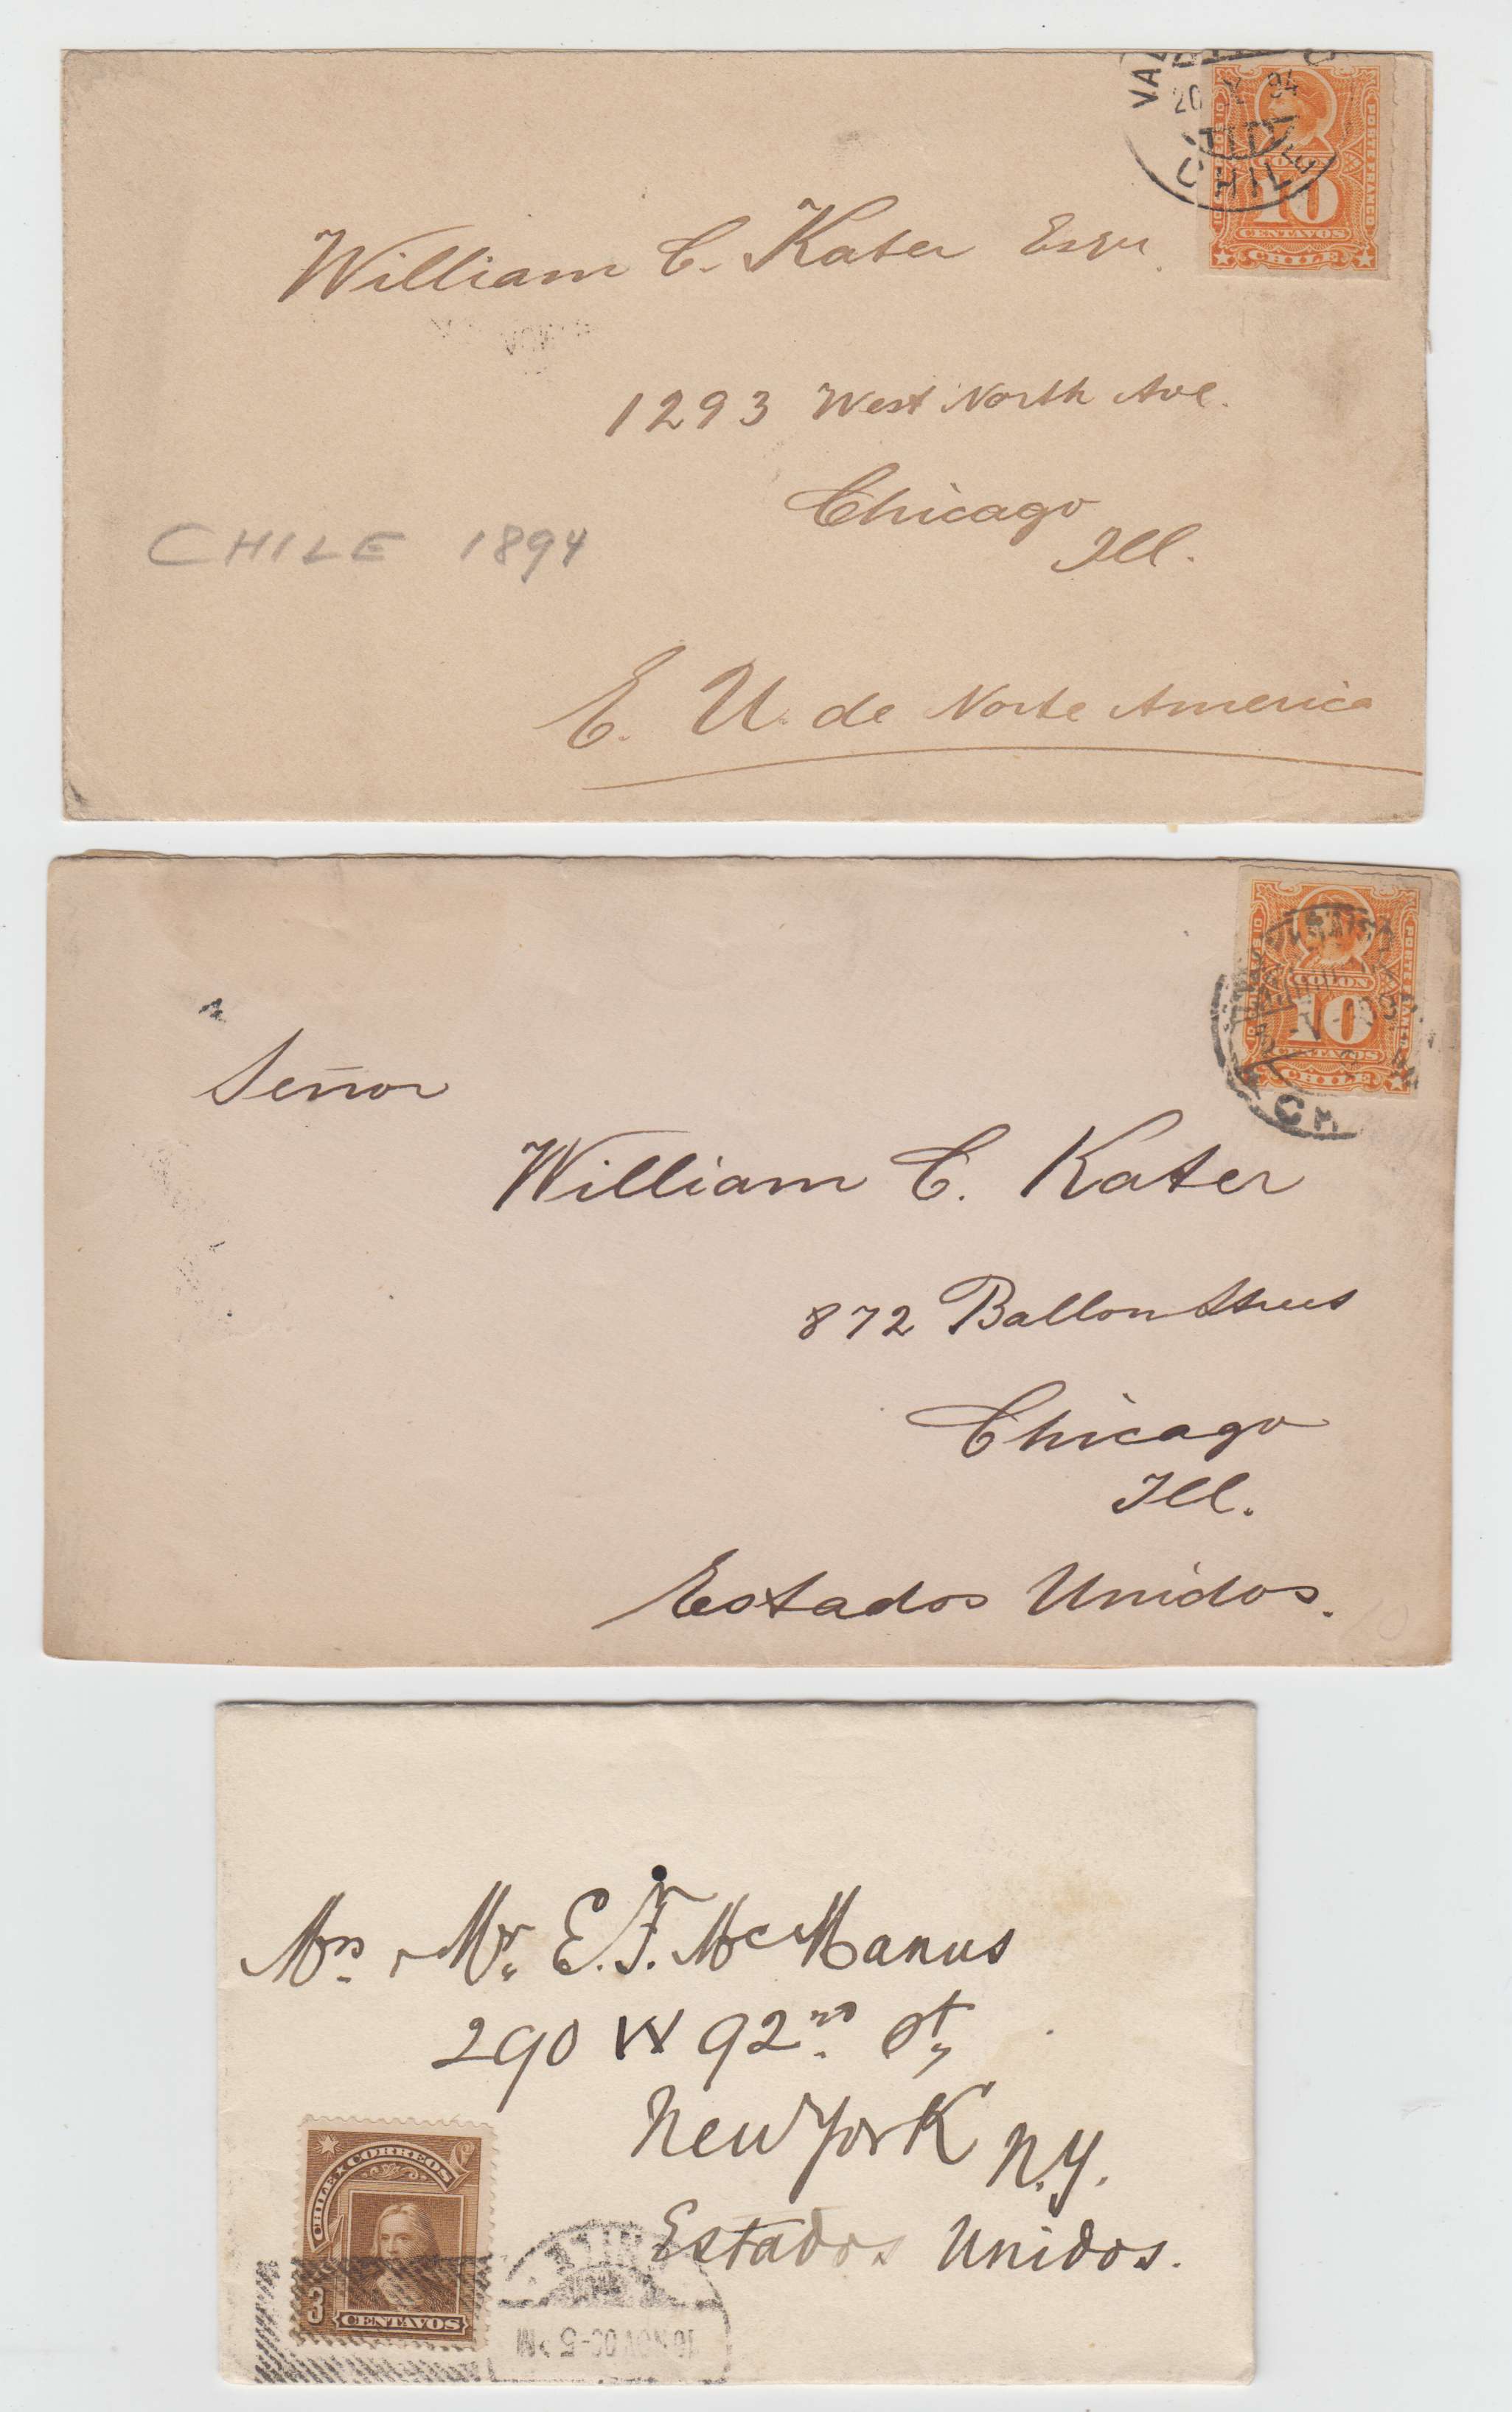 20 X 94
CHILE
COLON
10
CENTAVOS
CHILE
PORTE FRANCO
William C. Kater Esqu.
1293 West North Ave.
Chicago
Ill.
CHILE 1894
E. U. de Norte America
COLON
10
CENTAVOS
CHILE
Señor
William C. Kater
872 Ballon Street
Chicago
Ill.
Estados Unidos.
Mrs. + Mr. E. F. McManus
290 W 92nd St,
New York N.Y.
Estados Unidos.
CHILE CORREOS
3
CENTAVOS
CHILE